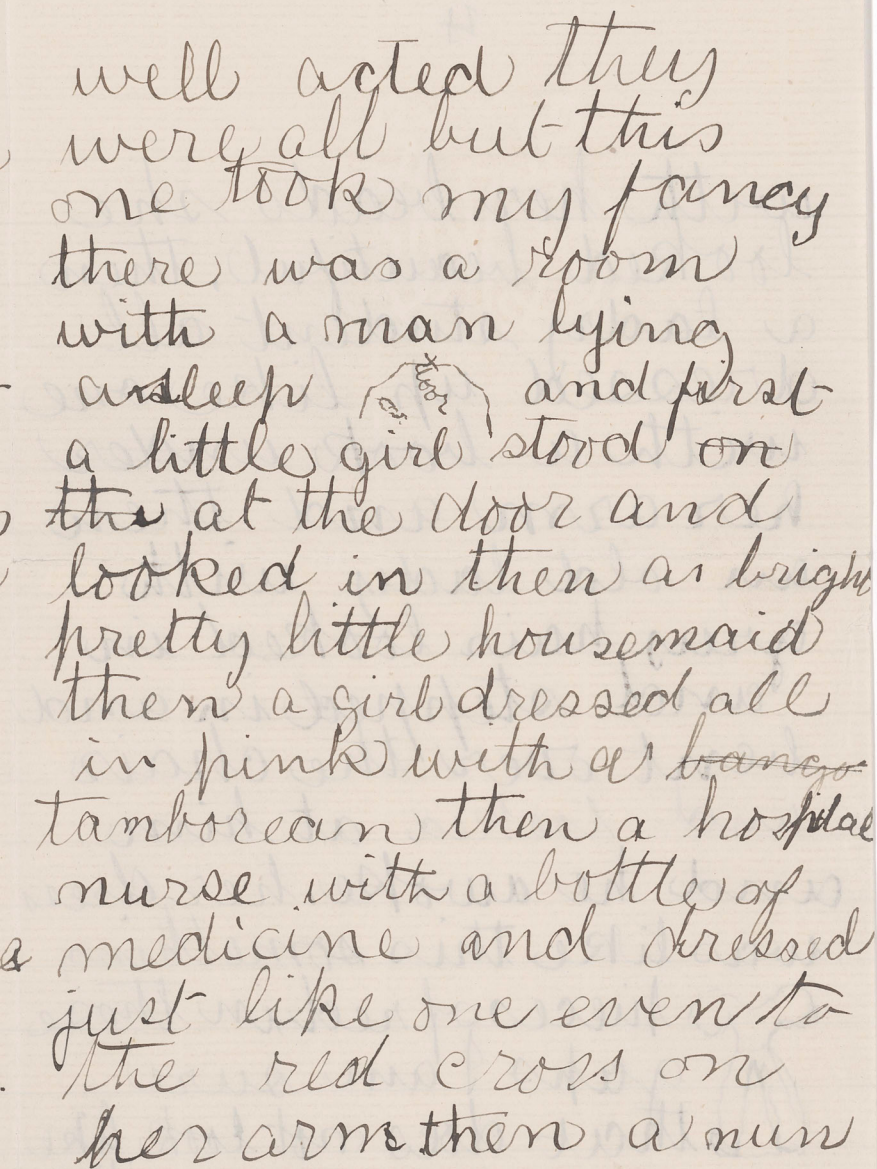 well acted they
were all but this
one took my fancy
there was a room
with a man lying
asleep and first
a little girl stood on
the at the door and
looked in then as bright
pretty little housemaid
then a girl dressed all
in pink with a bango
tamborean then a hospital
nurse with a bottle of
a medicine and dressed
just like one even to
the red cross on
her arm then a nun